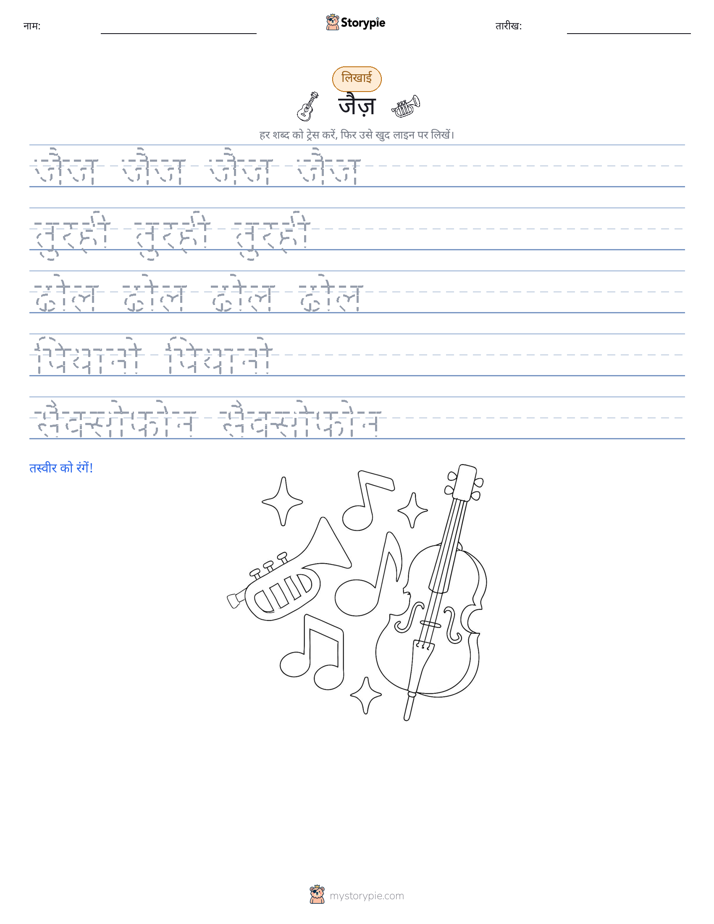 नाम:
Storypie
तारीख:
लिखाई
जैज़
हर शब्द को ट्रेस करें, फिर उसे खुद लाइन पर लिखें।
जैज जैज जैज जैज
तुरही तुरही तुरही
ढोल ढोल ढोल ढोल
पियानो पियानो
सैक्सोफोन सैक्सोफोन
तस्वीर को रंगें!
mystorypie.com